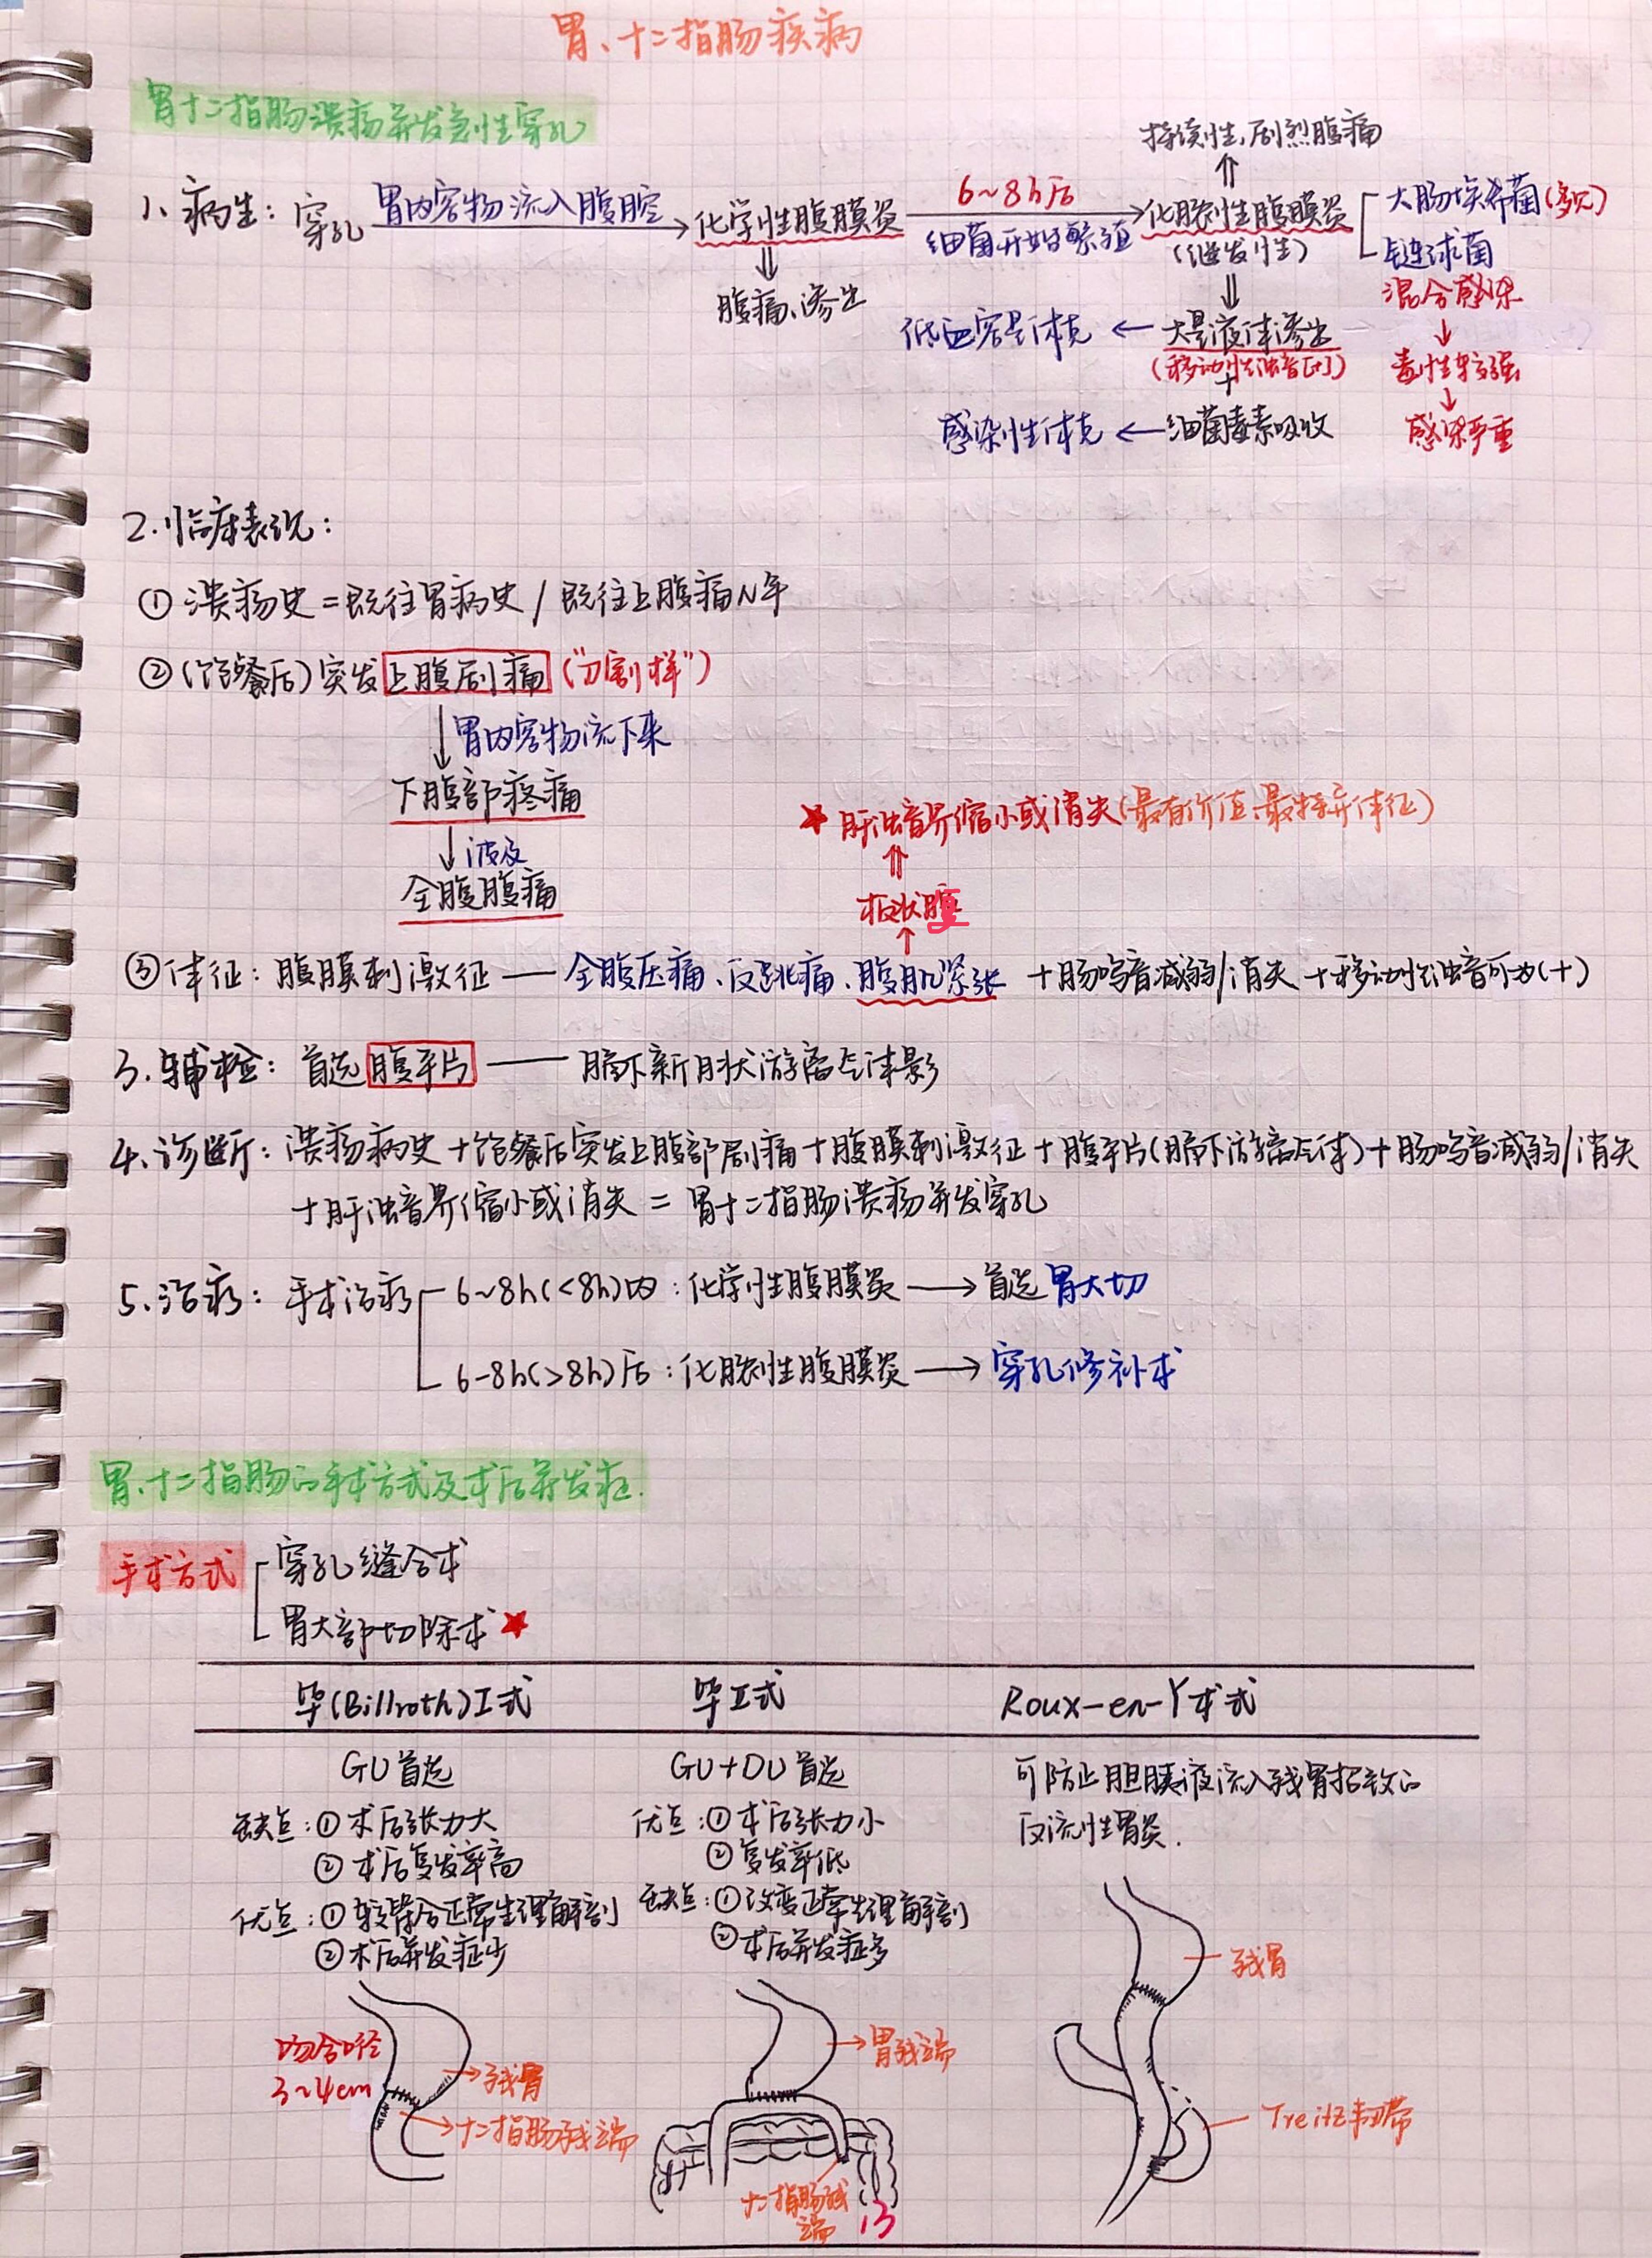 胃、十二指肠疾病
胃十二指肠溃疡并发急性穿孔
持续性,剧烈腹痛
1、病生: 穿孔 胃内容物流入腹腔 → 化学性腹膜炎 6~8h后 细菌开始繁殖 → 化脓性腹膜炎 (继发性) 大肠埃希菌(多见)
链球菌
混合感染
⇓ 腹痛、渗出
低血容量休克 ← 大量液体渗出 ↓
(移动性浊音[+]) 毒性较强
+ ↓
感染性休克 ← 细菌毒素吸收 感染严重
2.临床表现:
① 溃疡史=既往胃病史/既往上腹痛N年
②(饱餐后)突发上腹剧痛("刀割样")
↓胃内容物流下来
下腹部疼痛
↓波及
全腹腹痛
★肝浊音界缩小或消失(最有价值、最特异体征)
⇑
板状腹
↑
③体征: 腹膜刺激征 — 全腹压痛、反跳痛、腹肌紧张 +肠鸣音减弱/消失 +移动性浊音可为(+)
3.辅检: 首选腹平片 — 膈下新月状游离气体影
4、诊断: 溃疡病史+饱餐后突发上腹部剧痛+腹膜刺激征+腹平片(膈下游离气体)+肠鸣音减弱/消失
+肝浊音界缩小或消失 = 胃十二指肠溃疡并发穿孔
5.治疗: 手术治疗 6~8h(<8h)内: 化学性腹膜炎 → 首选胃大切
6-8h(>8h)后: 化脓性腹膜炎 → 穿孔修补术
胃、十二指肠的手术方式及术后并发症.
手术方式 穿孔缝合术
胃大部切除术★
毕(Billroth)I式 毕II式 Roux-en-Y术式
GU首选 GU+DU首选 可防止胆胰液流入残胃招致的
反流性胃炎.
缺点:①术后张力大 优点:①术后张力小
②术后复发率高 ②复发率低
优点:①较符合正常生理解剖 缺点:①改变正常生理解剖
②术后并发症少 ②术后并发症多
吻合口径
3~4cm
残胃
十二指肠残端
胃残端
十二指肠残
端
残胃
Treitz韧带
13